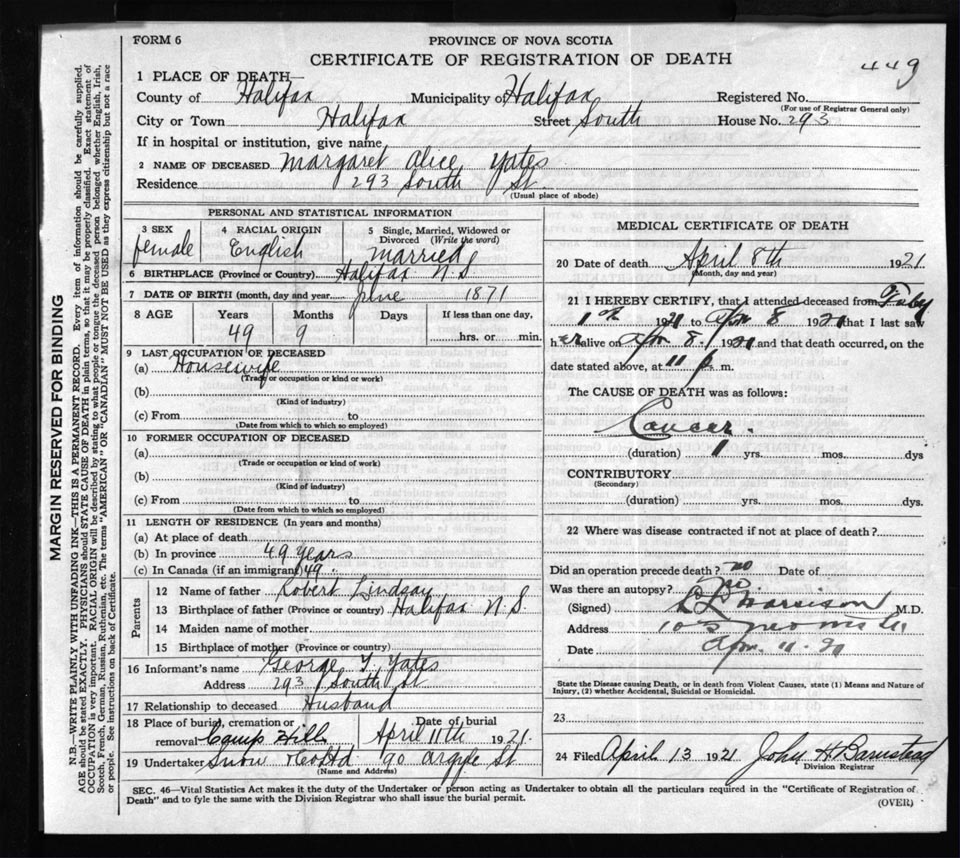 FORM 6
PROVINCE OF NOVA SCOTIA
CERTIFICATE OF REGISTRATION OF DEATH
449
1 PLACE OF DEATH—
County of Halifax Municipality of Halifax Registered No.
(For use of Registrar General only)
City or Town Halifax Street South House No. 293
If in hospital or institution, give name
2 NAME OF DECEASED Margaret Alice Yates
Residence 293 South St.
(Usual place of abode)
PERSONAL AND STATISTICAL INFORMATION
3 SEX 4 RACIAL ORIGIN 5 Single, Married, Widowed or Divorced (Write the word)
female English Married
6 BIRTHPLACE (Province or Country) Halifax N.S
7 DATE OF BIRTH (month, day and year June 1871
8 AGE Years Months Days If less than one day,
49 9 hrs. or min.
9 LAST OCCUPATION OF DECEASED
(a) Housewife
(Trade or occupation or kind or work)
(b)
(Kind of industry)
(c) From to
(Date from which to which so employed)
10 FORMER OCCUPATION OF DECEASED
(a)
(Trade or occupation or kind of work)
(b)
(Kind of industry)
(c) From to
(Date from which to which so employed)
11 LENGTH OF RESIDENCE (In years and months)
(a) At place of death
(b) In province 49 years
(c) In Canada (if an immigrant) 49 "
Parents
12 Name of father Robert Lindsay
13 Birthplace of father (Province or country) Halifax N.S.
14 Maiden name of mother
15 Birthplace of mother (Province or country)
16 Informant's name George Yates
Address 293 South St
17 Relationship to deceased Husband
18 Place of burial, cremation or removal Camp Hill Date of burial April 11th 1921.
19 Undertaker Snow & Co Ltd 90 Argyle St
(Name and Address)
MEDICAL CERTIFICATE OF DEATH
20 Date of death April 8th 1921
(Month, day and year)
21 I HEREBY CERTIFY, that I attended deceased from Feby
1st 1921 to Apr 8 1921 that I last saw
her alive on Apr 8. 1921 and that death occurred, on the
date stated above, at 11 p. m.
The CAUSE OF DEATH was as follows:
Cancer.
(duration) 1 yrs. mos. dys
CONTRIBUTORY
(Secondary)
(duration) yrs. mos. dys.
22 Where was disease contracted if not at place of death?
Did an operation precede death? no Date of
Was there an autopsy? no
(Signed) Morrison M.D.
Address 105
Date Apr. 11. 21
State the Disease causing Death, or in death from Violent Causes, state (1) Means and Nature of
Injury, (2) whether Accidental, Suicidal or Homicidal.
23
24 Filed April 13 1921 John H Barnstead
Division Registrar
SEC. 46—Vital Statistics Act makes it the duty of the Undertaker or person acting as Undertaker to obtain all the particulars required in the "Certificate of Registration of
Death" and to fyle the same with the Division Registrar who shall issue the burial permit.
(OVER)
MARGIN RESERVED FOR BINDING
N.B.—WRITE PLAINLY WITH UNFADING INK—THIS IS A PERMANENT RECORD. Every item of information should be carefully supplied.
AGE should be stated EXACTLY. PHYSICIANS should STATE CAUSE OF DEATH in plain terms, so that it may be properly classified. Exact statement of
OCCUPATION is very important. RACIAL ORIGIN will be described by stating to what people or tongue the deceased person belonged whether English, Irish,
Scotch, French, German, Russian, Ruthenian, etc. The terms "AMERICAN" OR "CANADIAN" MUST NOT BE USED as they express citizenship but not a race
or people. See instructions on back of Certificate.